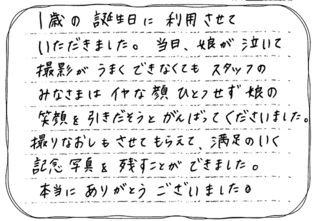 1歳の誕生日に利用させて
いただきました。当日、娘が泣いて
撮影がうまくできなくてもスタッフの
みなさまはイヤな顔ひとつせず娘の
笑顔を引きだそうとがんばってくださいました。
撮りなおしもさせてもらえて、満足のいく
記念写真を残すことができました。
本当にありがとうございました。